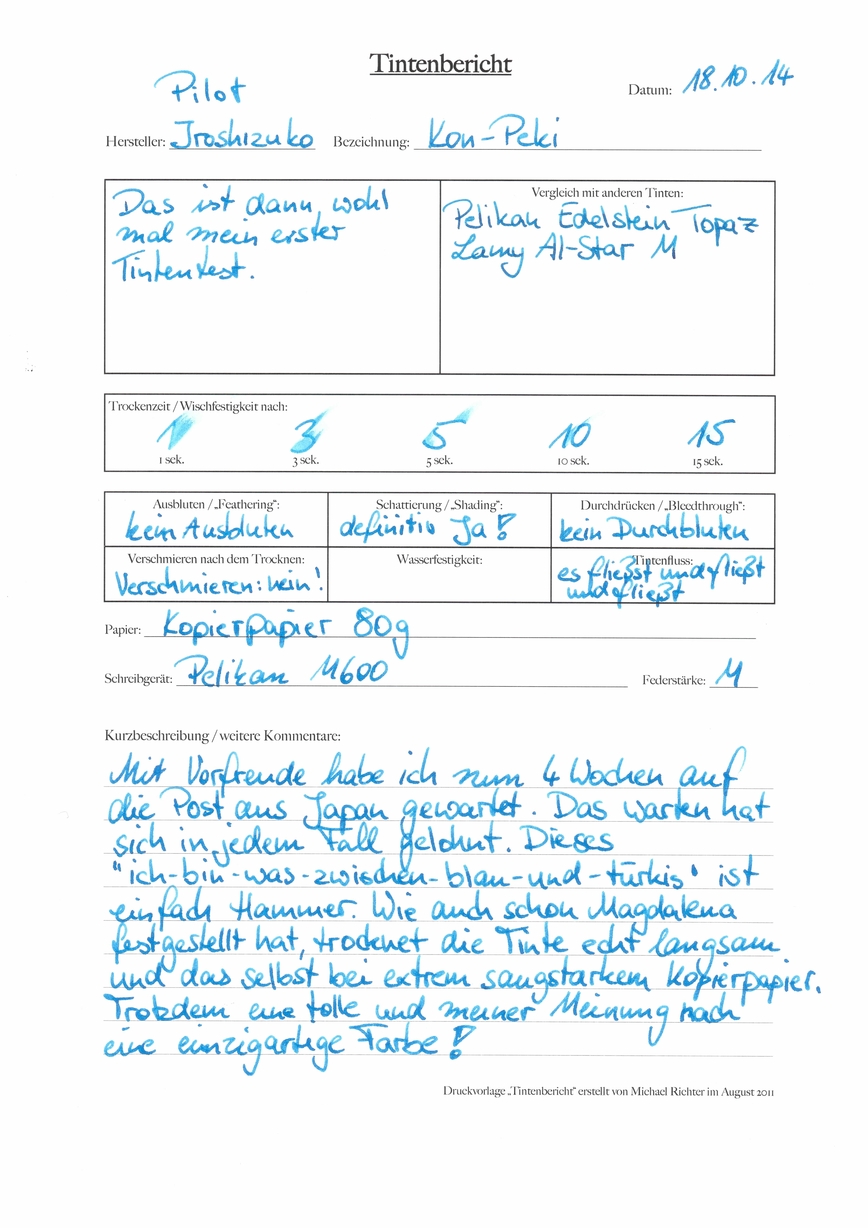 Tintenbericht
Pilot
Datum: 18.10.14
Hersteller: Iroshizuko Bezeichnung: Kon-Peki
Das ist dann wohl
mal mein erster
Tintentest.
Vergleich mit anderen Tinten:
Pelikan Edelstein Topaz
Lamy Al-Star M
Trockenzeit / Wischfestigkeit nach:
1 3 5 10 15
1 sek. 3 sek. 5 sek. 10 sek. 15 sek.
Ausbluten / „Feathering“:
kein Ausbluten
Schattierung / „Shading“:
definitiv Ja!
Durchdrücken / „Bleedthrough“:
kein Durchbluten
Verschmieren nach dem Trocknen:
Verschmieren: nein!
Wasserfestigkeit:
Tintenfluss:
es fließt und fließt
und fließt
Papier: Kopierpapier 80g
Schreibgerät: Pelikan M600 Federstärke: M
Kurzbeschreibung / weitere Kommentare:
Mit Vorfreude habe ich nun 4 Wochen auf
die Post aus Japan gewartet. Das warten hat
sich in jedem Fall gelohnt. Dieses
"ich-bin-was-zwischen-blau-und-türkis" ist
einfach Hammer. Wie auch schon Magdalena
festgestellt hat, trocknet die Tinte echt langsam
und das selbst bei extrem saugstarkem Kopierpapier.
Trotzdem eine tolle und meiner Meinung nach
eine einzigartige Farbe!
Druckvorlage „Tintenbericht“ erstellt von Michael Richter im August 2011